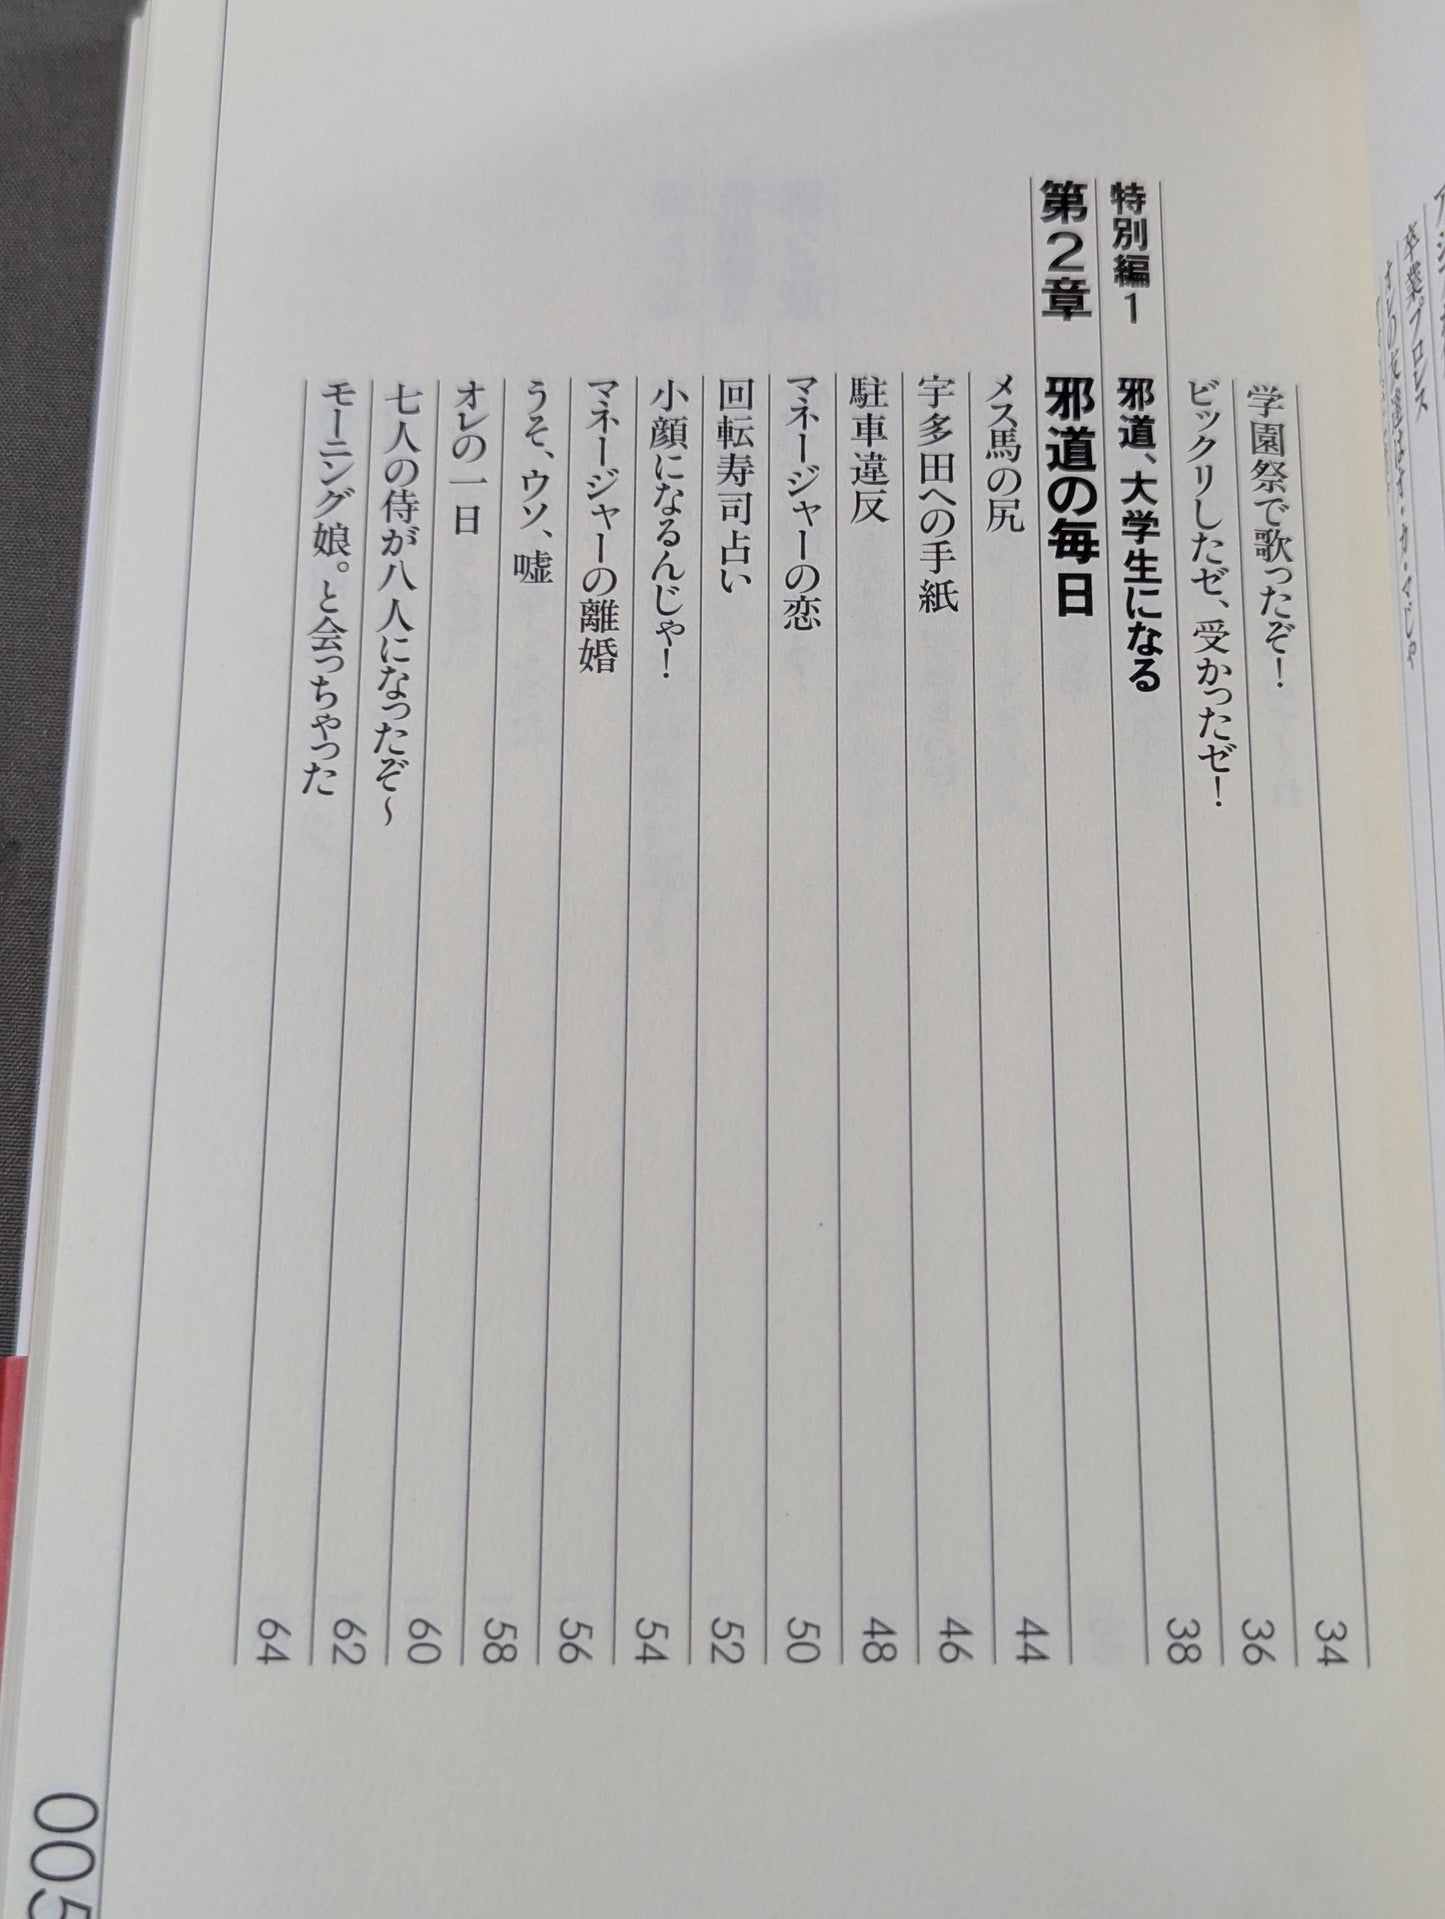 卒業プロレス
学園祭で歌ったぞ！ 34
ビックリしたゼ、受かったゼ！ 36
特別編1 邪道、大学生になる 38
第2章 邪道の毎日
メス馬の尻 44
宇多田への手紙 46
駐車違反 48
マネージャーの恋 50
回転寿司占い 52
小顔になるんじゃ！ 54
マネージャーの離婚 56
うそ、ウソ、嘘 58
オレの一日 60
七人の侍が八人になったぞ〜 62
モーニング娘。と会っちゃった 64
005